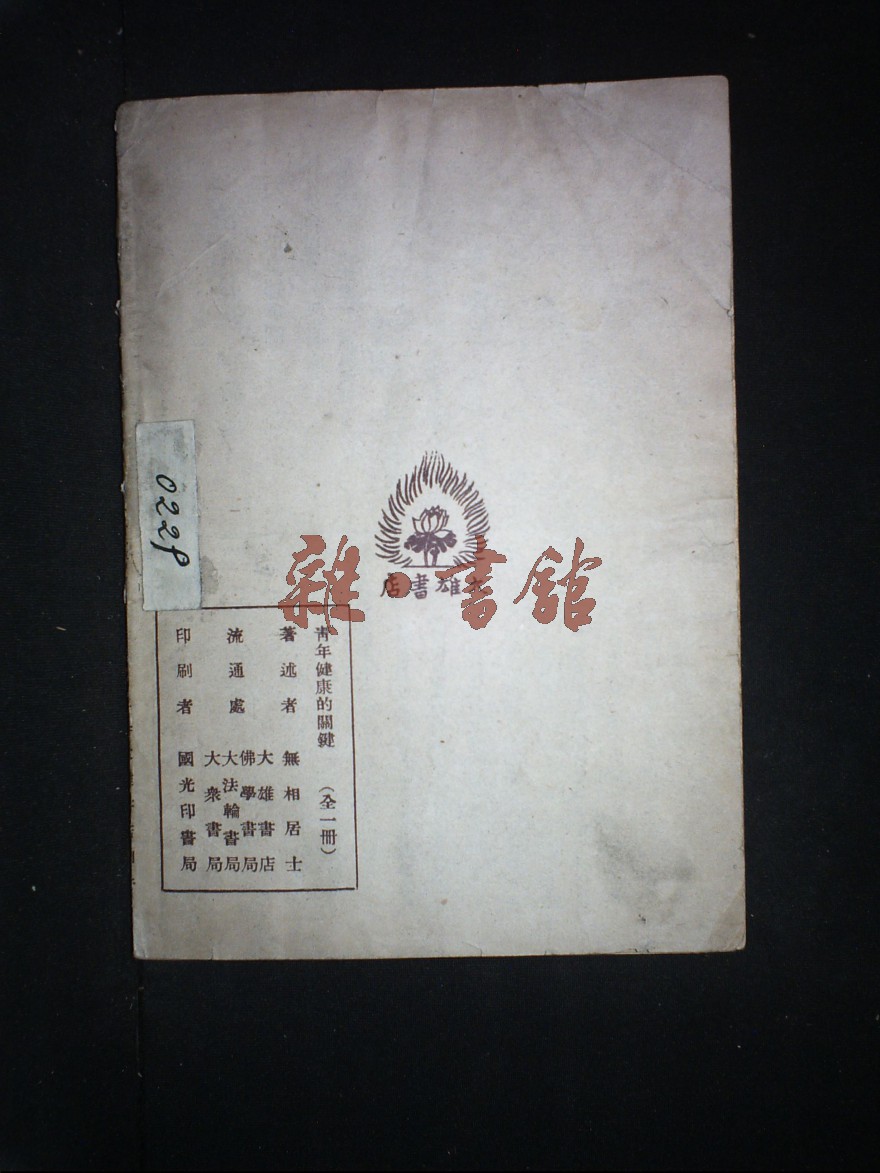 0229
大雄書店
雜·書館
青年健康的關鍵 (全一冊)
著述者 無相居士
流通處 大雄書店
佛學書局
大法輪書局
大衆書局
印刷者 國光印書局